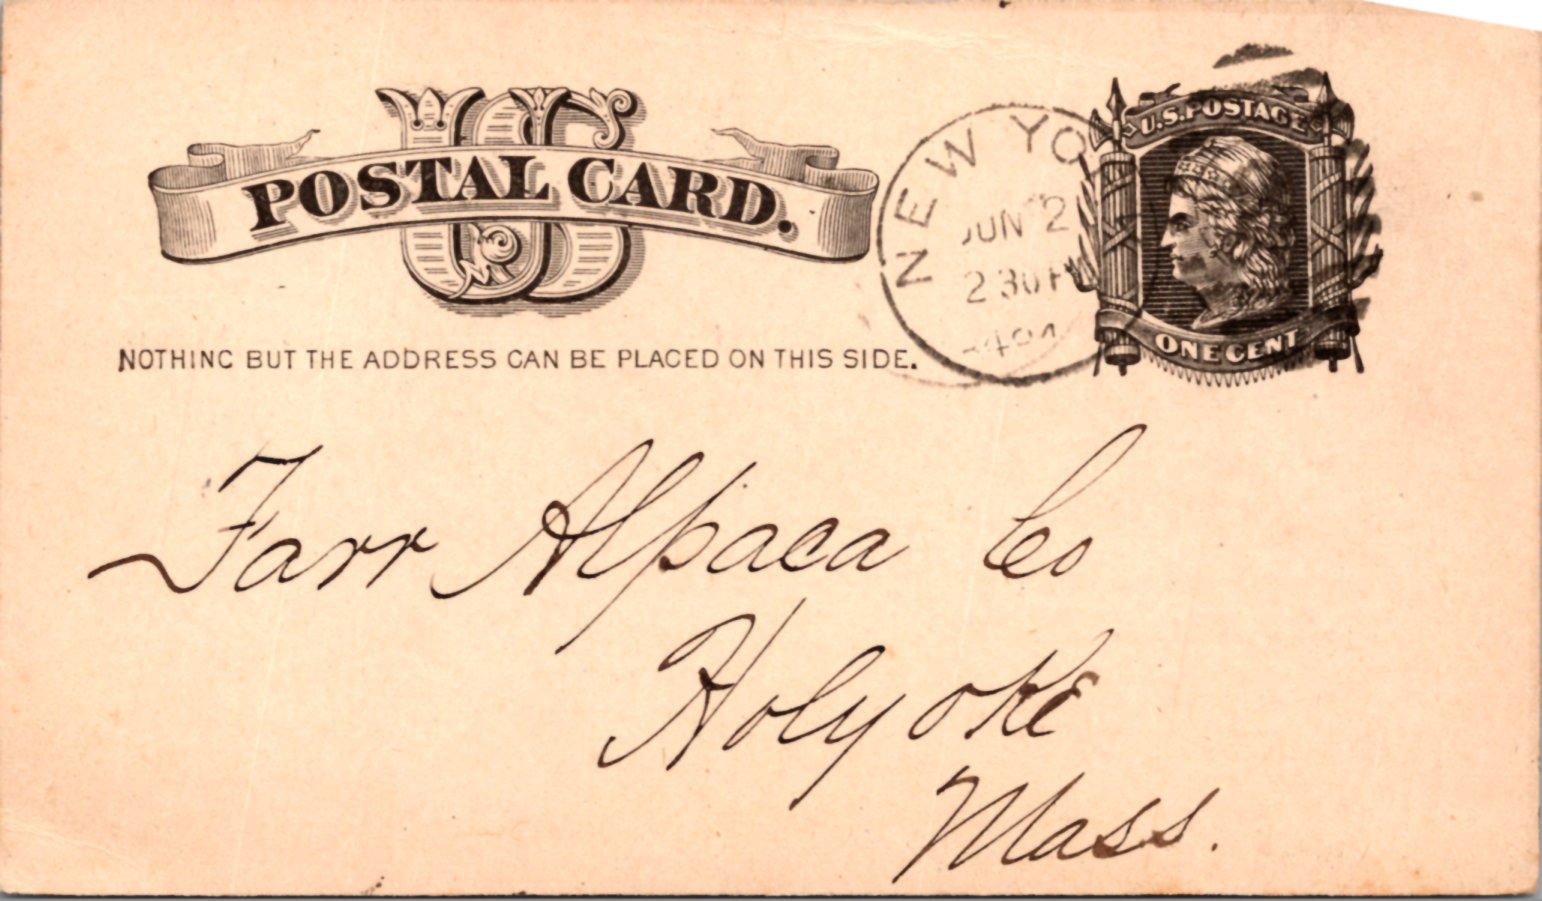 US
POSTAL CARD.
NOTHING BUT THE ADDRESS CAN BE PLACED ON THIS SIDE.
NEW YO
JUN 2
2 30 P
U.S. POSTAGE
ONE CENT
Farr Alpaca Co
Holyoke
Mass.